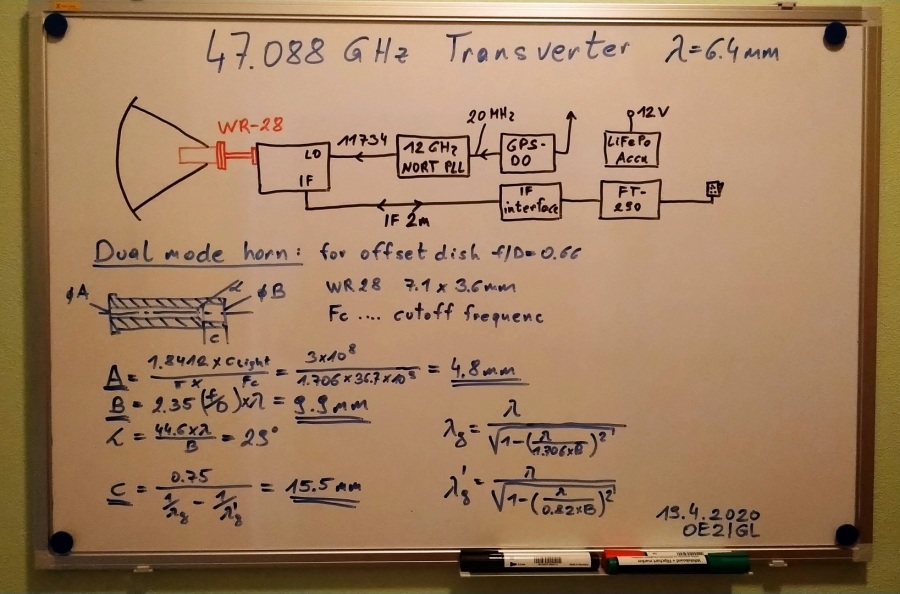 47.088 GHz Transverter λ=6.4mm
WR-28
LO
IF
11734
12 GHz
NORT PLL
20 MHz
GPS-
DO
12V
LiFePo
Accu
IF 2m
IF
interface
FT-
290
Dual mode horn: for offset dish f/D=0.66
ϕA
α
ϕB
c
WR28 7.1 x 3.6mm
Fc .... cutoff frequenc
A = 1.8412 x Clight / π x Fc = 3x10⁸ / 1.706 x 36.7 x 10⁹ = 4.8mm
B = 2.35 (f/D) x λ = 9.9mm
α = 44.6 x λ / B = 29°
λg = λ / √1-(λ / 1.706xB)²
C = 0.75 / 1/λg - 1/λ'g = 15.5mm
λ'g = λ / √1-(λ / 0.82xB)²
19.4.2020
OE2IGL